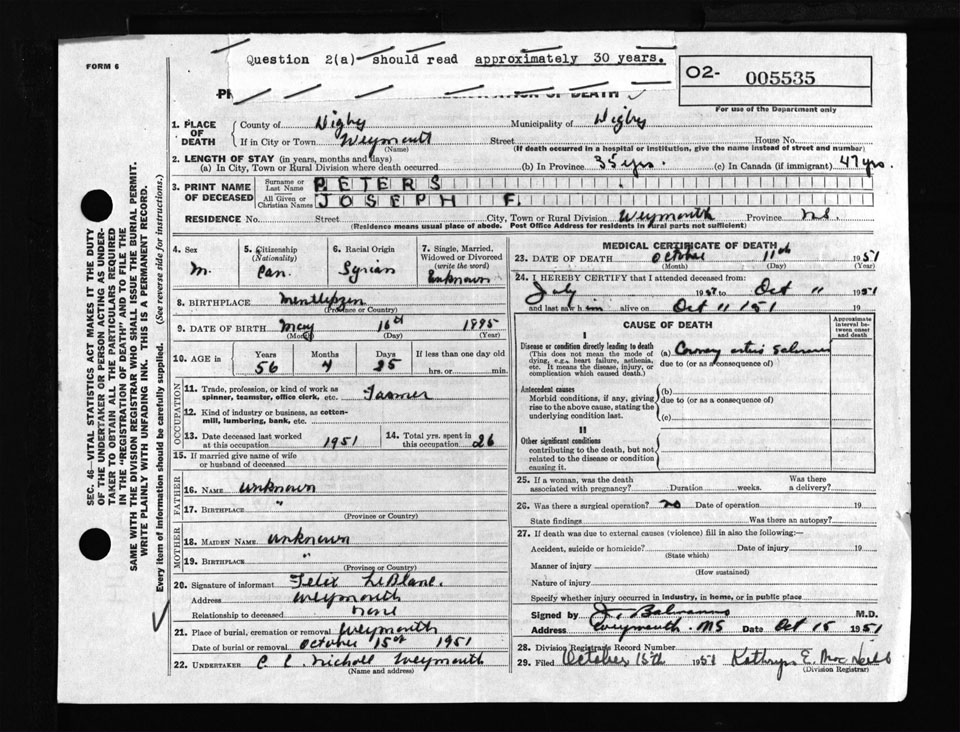 Question 2(a) should read approximately 30 years.
FORM 6
O2- 005535
OF DEATH
For use of the Department only
1. PLACE OF DEATH
County of Digby Municipality of Digby
If in City or Town Weymouth Street House No.
(Name) (If death occurred in a hospital or institution, give the name instead of street and number)
2. LENGTH OF STAY (in years, months and days)
(a) In City, Town or Rural Division where death occurred (b) In Province 35 yrs. (c) In Canada (if immigrant) 47 yrs.
3. PRINT NAME OF DECEASED
Surname or Last Name PETERS
All Given or Christian Names JOSEPH F.
RESIDENCE No. Street City, Town or Rural Division Weymouth Province N.S.
(Residence means usual place of abode. Post Office Address for residents in rural parts not sufficient)
4. Sex
M.
5. Citizenship
(Nationality)
Can.
6. Racial Origin
Syrian
7. Single, Married,
Widowed or Divorced
(write the word)
Unknown
8. BIRTHPLACE
(Province or Country)
9. DATE OF BIRTH May 16th 1895
(Month) (Day) (Year)
10. AGE in
Years Months Days If less than one day old
56 4 25 hrs. or min.
OCCUPATION
11. Trade, profession, or kind of work as
spinner, teamster, office clerk, etc. Farmer
12. Kind of industry or business, as cotton-
mill, lumbering, bank, etc.
13. Date deceased last worked
at this occupation 1951
14. Total yrs. spent in
this occupation 26
15. If married give name of wife
or husband of deceased
FATHER
16. NAME unknown
17. BIRTHPLACE "
(Province or Country)
MOTHER
18. MAIDEN NAME unknown
19. BIRTHPLACE "
(Province or Country)
20. Signature of informant Felix LeBlanc.
Address Weymouth
Relationship to deceased none
21. Place of burial, cremation or removal Weymouth
Date of burial or removal October 15th 1951
22. UNDERTAKER C L Nicholl Weymouth
(Name and address)
MEDICAL CERTIFICATE OF DEATH
23. DATE OF DEATH October 11th 1951
(Month) (Day)
24. I HEREBY CERTIFY that I attended deceased from:
July 1951 to Oct 11 1951
and last saw him alive on Oct 11 151
CAUSE OF DEATH
Approximate
interval be-
tween onset
and death
I
Disease or condition directly leading to death
(This does not mean the mode of
dying, e.g. heart failure, asthenia,
etc. It means the disease, injury, or
complication which caused death.)
(a)
due to (or as a consequence of)
Antecedent causes
Morbid conditions, if any, giving
rise to the above cause, stating the
underlying condition last.
(b)
due to (or as a consequence of)
(c)
II
Other significant conditions
contributing to the death, but not
related to the disease or condition
causing it.
25. If a woman, was the death
associated with pregnancy? Duration weeks. Was there
a delivery?
26. Was there a surgical operation? no Date of operation 19
State findings Was there an autopsy?
27. If death was due to external causes (violence) fill in also the following:—
Accident, suicide or homicide? Date of injury 19
(State which)
Manner of injury
(How sustained)
Nature of injury
Specify whether injury occurred in industry, in home, or in public place
Signed by M.D.
Address Weymouth NS Date Oct 15 1951
28. Division Registrar's Record Number
29. Filed October 15th 1951 Kathryn E.
(Division Registrar)
SEC. 46—VITAL STATISTICS ACT MAKES IT THE DUTY
OF THE UNDERTAKER OR PERSON ACTING AS UNDER-
TAKER TO OBTAIN ALL THE PARTICULARS REQUIRED
IN THE "REGISTRATION OF DEATH" AND TO FILE THE
SAME WITH THE DIVISION REGISTRAR WHO SHALL ISSUE THE BURIAL PERMIT.
WRITE PLAINLY WITH UNFADING INK. THIS IS A PERMANENT RECORD.
Every item of information should be carefully supplied. (See reverse side for instructions.)